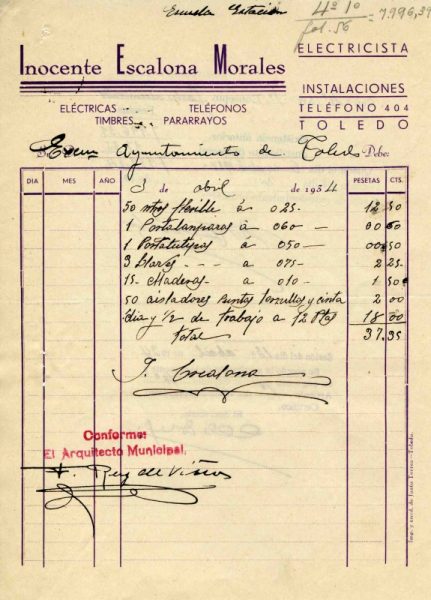 Escuela Estación
4º 1º
fol. 56 = 7.996,39
INOCENTE ESCALONA MORALES
ELECTRICISTA
INSTALACIONES
ELÉCTRICAS TELÉFONOS
TELÉFONO 404
TIMBRES PARARRAYOS
TOLEDO
Excmo Ayuntamiento de Toledo Debe:
DIA MES AÑO 3 de abril de 1934 PESETAS CTS.
50 mtros flexible á 0 25 - 12 50
1 Portalamparas á 0 60 - 00 60
1 Portatulipas á 0 50 - 00 50
3 llaves - - - a 0 75 - 2 25
15 - Maderas - a 0 10 - 1 50
50 aisladores puntas tornillos y cinta 2 00
dia y 1/2 de trabajo a 12 Ptas 18 00
Total 37,35
I. Escalona
Conforme:
El Arquitecto Municipal,
Imp. y encd. de
Toledo